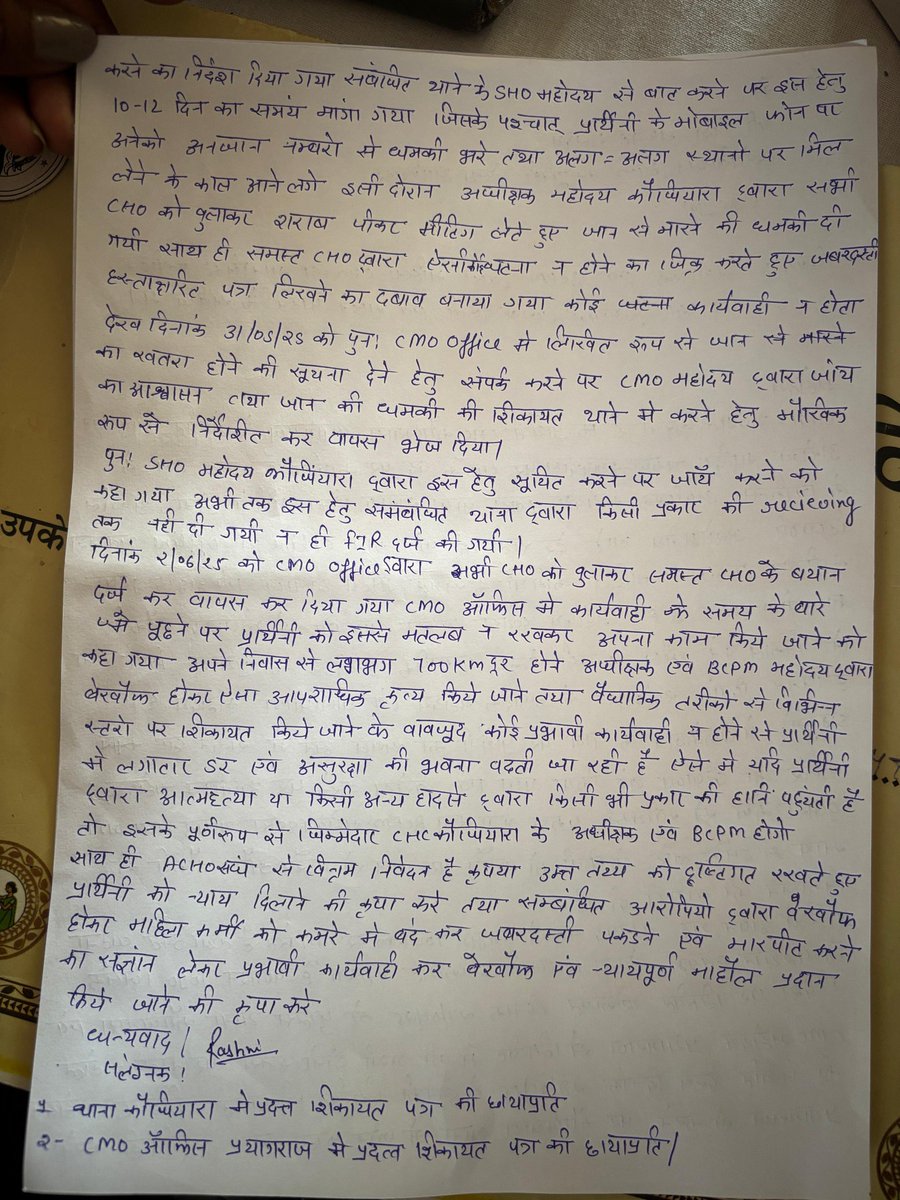 करने का निर्देश दिया गया संबंधित थाने के SHO महोदय से बात करने पर इस हेतु
10-12 दिन का समय मांगा गया जिसके पश्चात् प्रार्थिनी के मोबाइल फोन पर
अनेको अनजान नम्बरो से धमकी भरे तथा अलग=अलग स्थानो पर मिल
लेने के काल आने लगे इसी दौरान अधीक्षक महोदय कौंधियारा द्वारा सभी
CHO को बुलाकर शराब पीकर मीटिंग लेते हुए जान से मारने की धमकी दी
गयी साथ ही समस्त CHO द्वारा ऐसी कोई घटना न होने का जिक्र करते हुए जबरदस्ती
हस्ताक्षरित पत्र लिखने का दबाव बनाया गया कोई कार्यवाही न होता
देख दिनांक 31/05/25 को पुनः CMO office मे लिखित रूप से जान से मारने
का खतरा होने की सूचना देने हेतु संपर्क करने पर CMO महोदय द्वारा जाँच
का आश्वासन तथा जान की धमकी की शिकायत थाने मे करने हेतु मौखिक
रूप से निर्देशित कर वापस भेज दिया।
पुनः SHO महोदय कौंधियारा द्वारा इस हेतु सूचित करने पर जाँच करने को
कहा गया अभी तक इस हेतु समंबंधित थाना द्वारा किसी प्रकार की recieving
तक नही दी गयी न ही FIR दर्ज की गयी।
उपके
दिनांक 2/06/25 को CMO office द्वारा सभी CHO को बुलाकर समस्त CHO के बयान
दर्ज कर वापस कर दिया गया CMO ऑफिस मे कार्यवाही के समय के बारे
मे पूछने पर प्रार्थिनी को इससे मतलब न रखकर अपना काम किये जाने को
कहा गया अपने निवास से लगभग 700KM दूर होने अधीक्षक एवं BCPM महोदय द्वारा
बेखौफ होकर ऐसा आपराधिक कृत्य किये जाने तथा वैधानिक तरीको से विभिन्न
स्तरो पर शिकायत किये जाने के वावजूद कोई प्रभावी कार्यवाही न होने से प्रार्थिनी
मे लगातार डर एवं असुरक्षा की भवना बढती जा रही है ऐसे मे यदि प्रार्थिनी
द्वारा आत्महत्या या किसी अन्य हादसे द्वारा किसी भी प्रकार की हानि पहुचती है
तो इसके पूर्णरूप से जिम्मेदार CHC कौंधियारा के अधीक्षक एवं BCPM होगे
साथ ही ACHO संघ से विनम्र निवेदन है कृपया उक्त तथ्य को दृष्टिगत रखते हुए
प्रार्थिनी को न्याय दिलाने की कृपा करे तथा सम्बंधित आरोपियो द्वारा बेखौफ
होकर महिला कर्मी को कमरे मे बंद कर जबरदस्ती पकडने एवं मारपीट करने
का संज्ञान लेकर प्रभावी कार्यवाही कर बेखौफ एवं न्यायपूर्ण माहौल प्रदान
किये जाने की कृपा करे
धन्यवाद। Rashmi
संलग्नक!
1 थाना कौंधियारा मे प्रदत्त शिकायत पत्र की छायाप्रति
२- CMO ऑफिस प्रयागराज मे प्रदत्त शिकायत पत्र की छायाप्रति।